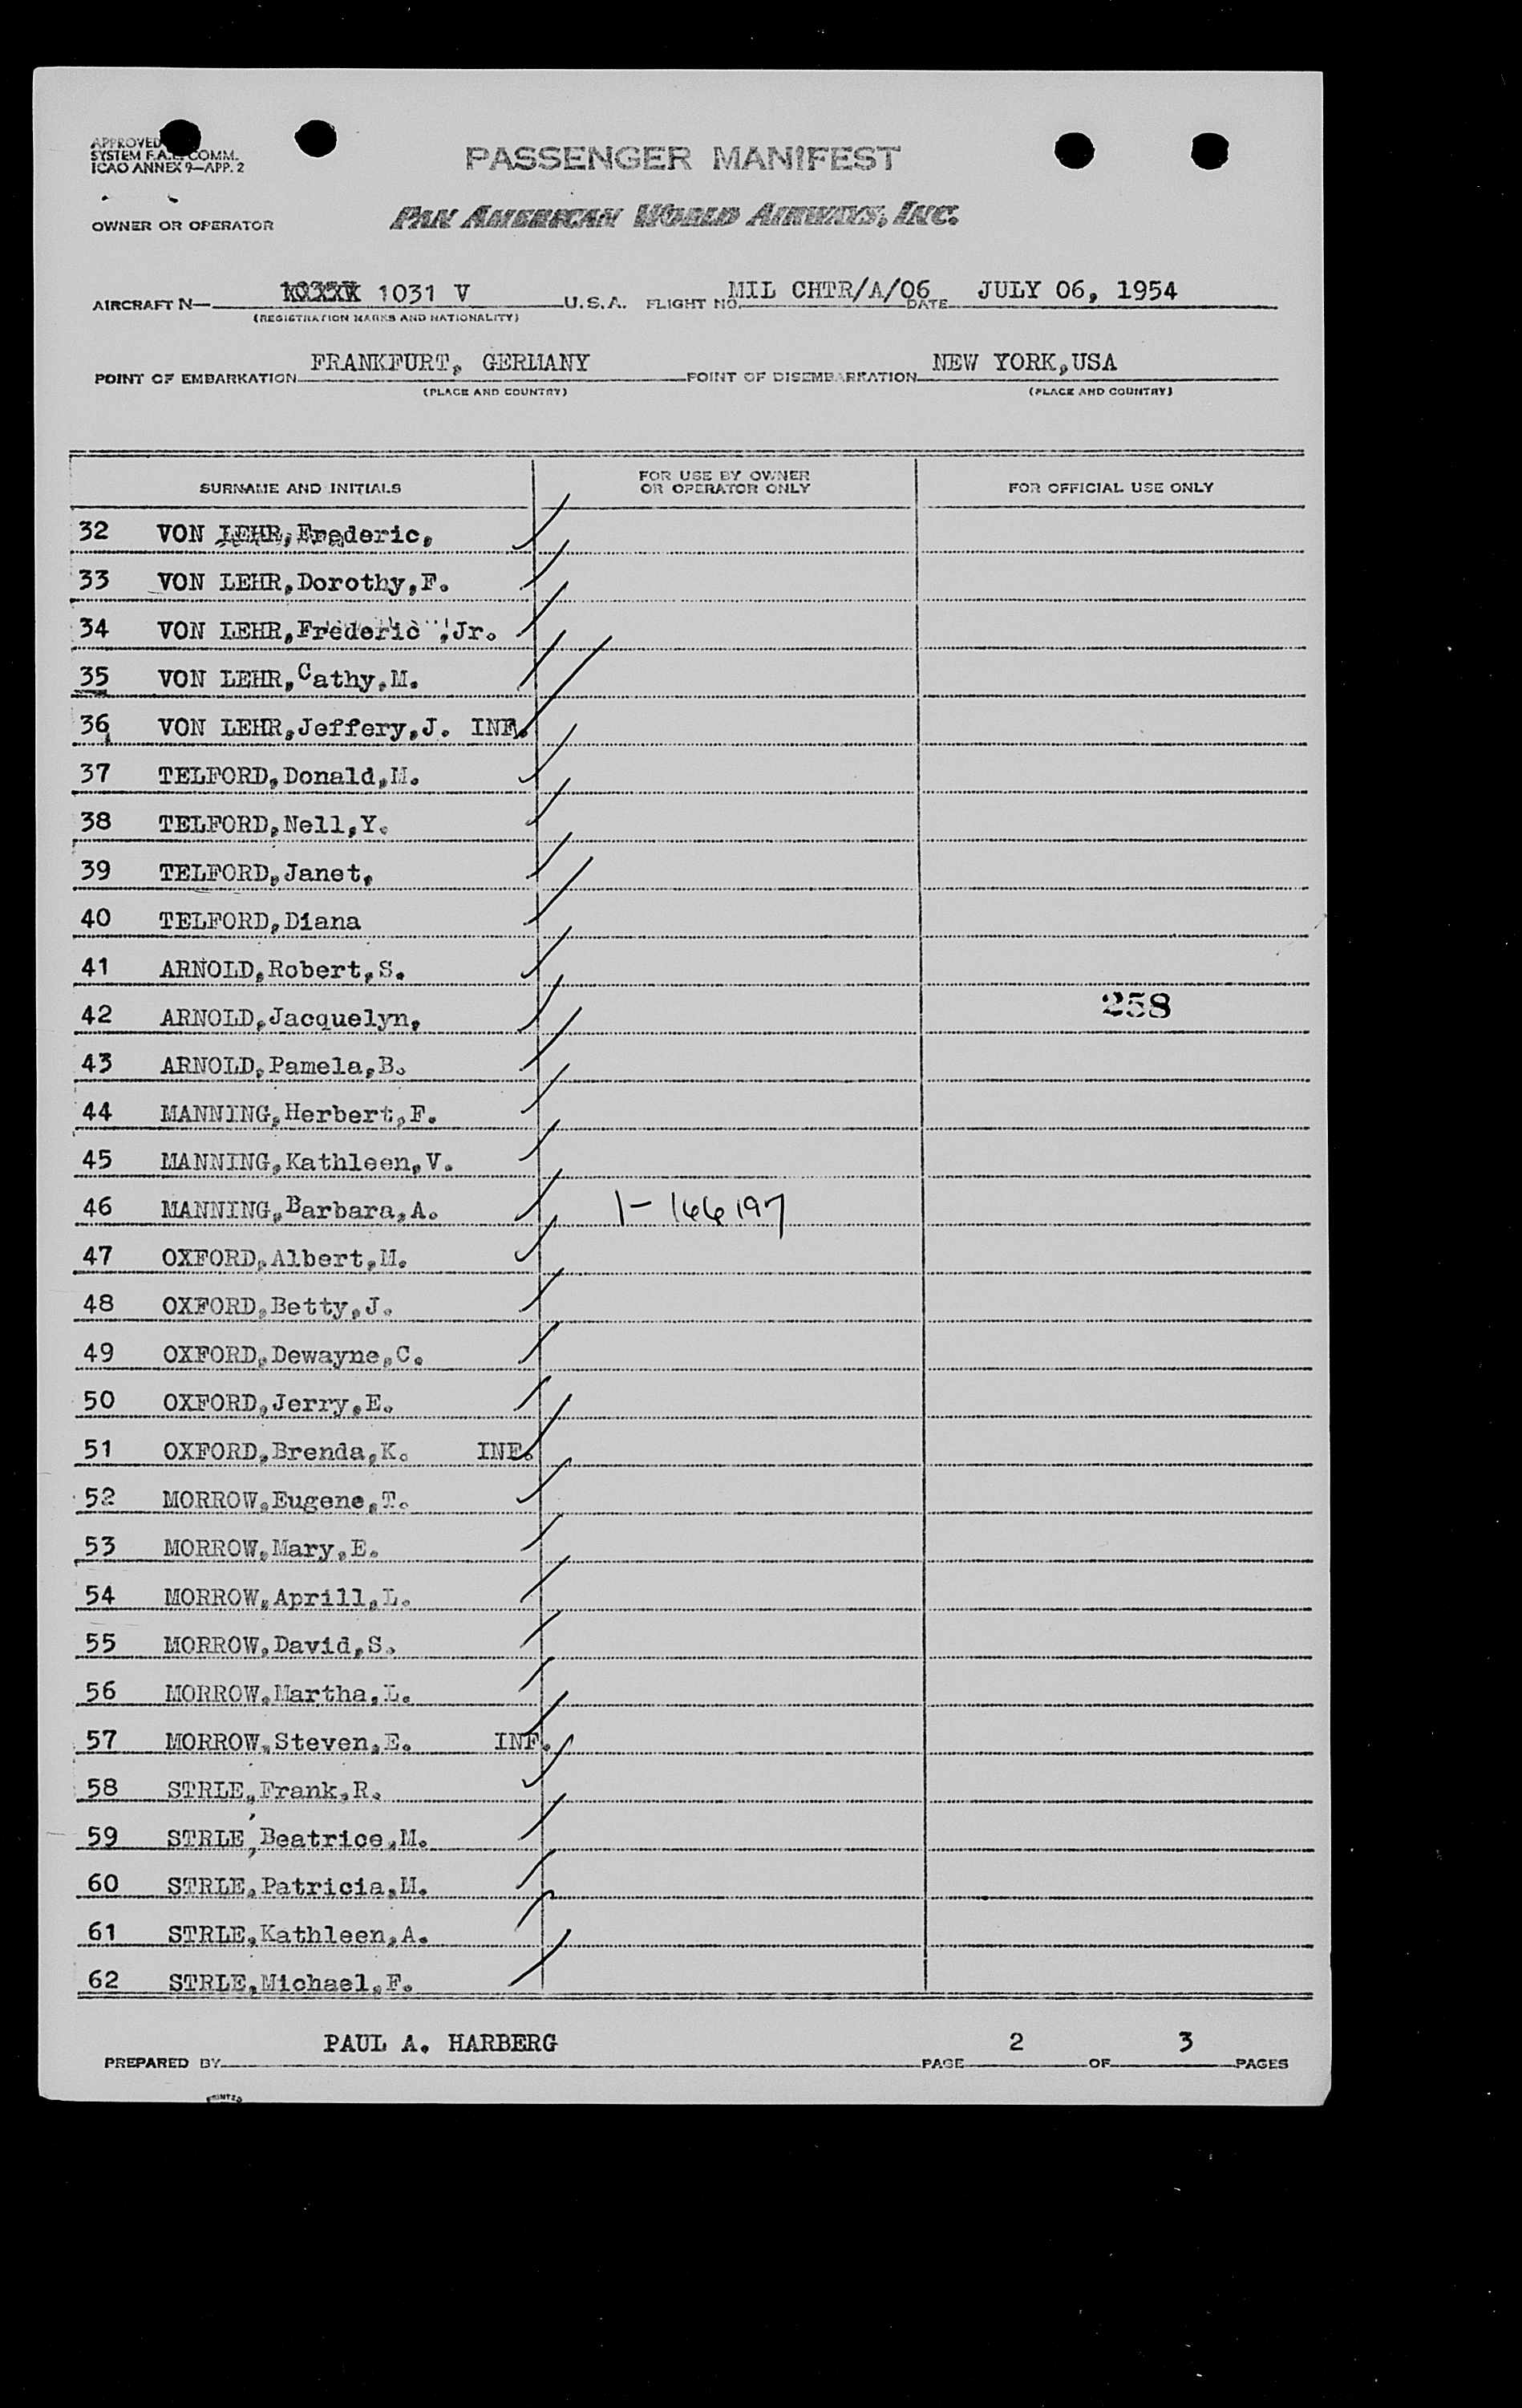 APPROVED
SYSTEM F.A.L. COMM.
ICAO ANNEX 9—APP. 2
PASSENGER MANIFEST
OWNER OR OPERATOR PAN AMERICAN WORLD AIRWAYS, INC.
AIRCRAFT N— 1031 V U.S.A. FLIGHT NO. MIL CHTR/A/06 DATE JULY 06, 1954
(REGISTRATION MARKS AND NATIONALITY)
POINT OF EMBARKATION FRANKFURT, GERMANY POINT OF DISEMBARKATION NEW YORK,USA
(PLACE AND COUNTRY) (PLACE AND COUNTRY)
SURNAME AND INITIALS FOR USE BY OWNER OR OPERATOR ONLY FOR OFFICIAL USE ONLY
32 VON LEHR,Frederic,
33 VON LEHR,Dorothy,F.
34 VON LEHR,Frederic ,Jr.
35 VON LEHR,Cathy,M.
36 VON LEHR,Jeffery,J. INF.
37 TELFORD,Donald,M.
38 TELFORD,Nell,Y.
39 TELFORD,Janet,
40 TELFORD,Diana
41 ARNOLD,Robert,S.
42 ARNOLD,Jacquelyn, 258
43 ARNOLD,Pamela,B.
44 MANNING,Herbert,F.
45 MANNING,Kathleen,V.
46 MANNING,Barbara,A. 1-166197
47 OXFORD,Albert,M.
48 OXFORD,Betty,J.
49 OXFORD,Dewayne,C.
50 OXFORD,Jerry,E.
51 OXFORD,Brenda,K. INF.
52 MORROW,Eugene,T.
53 MORROW,Mary,E.
54 MORROW,Aprill,L.
55 MORROW,David,S.
56 MORROW,Martha,L.
57 MORROW,Steven,E. INF.
58 STRLE,Frank,R.
59 STRLE,Beatrice,M.
60 STRLE,Patricia,M.
61 STRLE,Kathleen,A.
62 STRLE,Michael,F.
PREPARED BY PAUL A. HARBERG PAGE 2 OF 3 PAGES